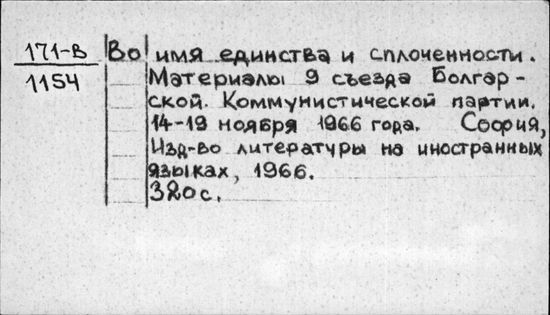 171-В
1154
Во имя единства и сплоченности.
Материалы 9 съезда Болгар-
ской Коммунистической партии.
14-19 ноября 1966 года. София,
Изд-во литературы на иностранных
языках, 1966.
320 с.